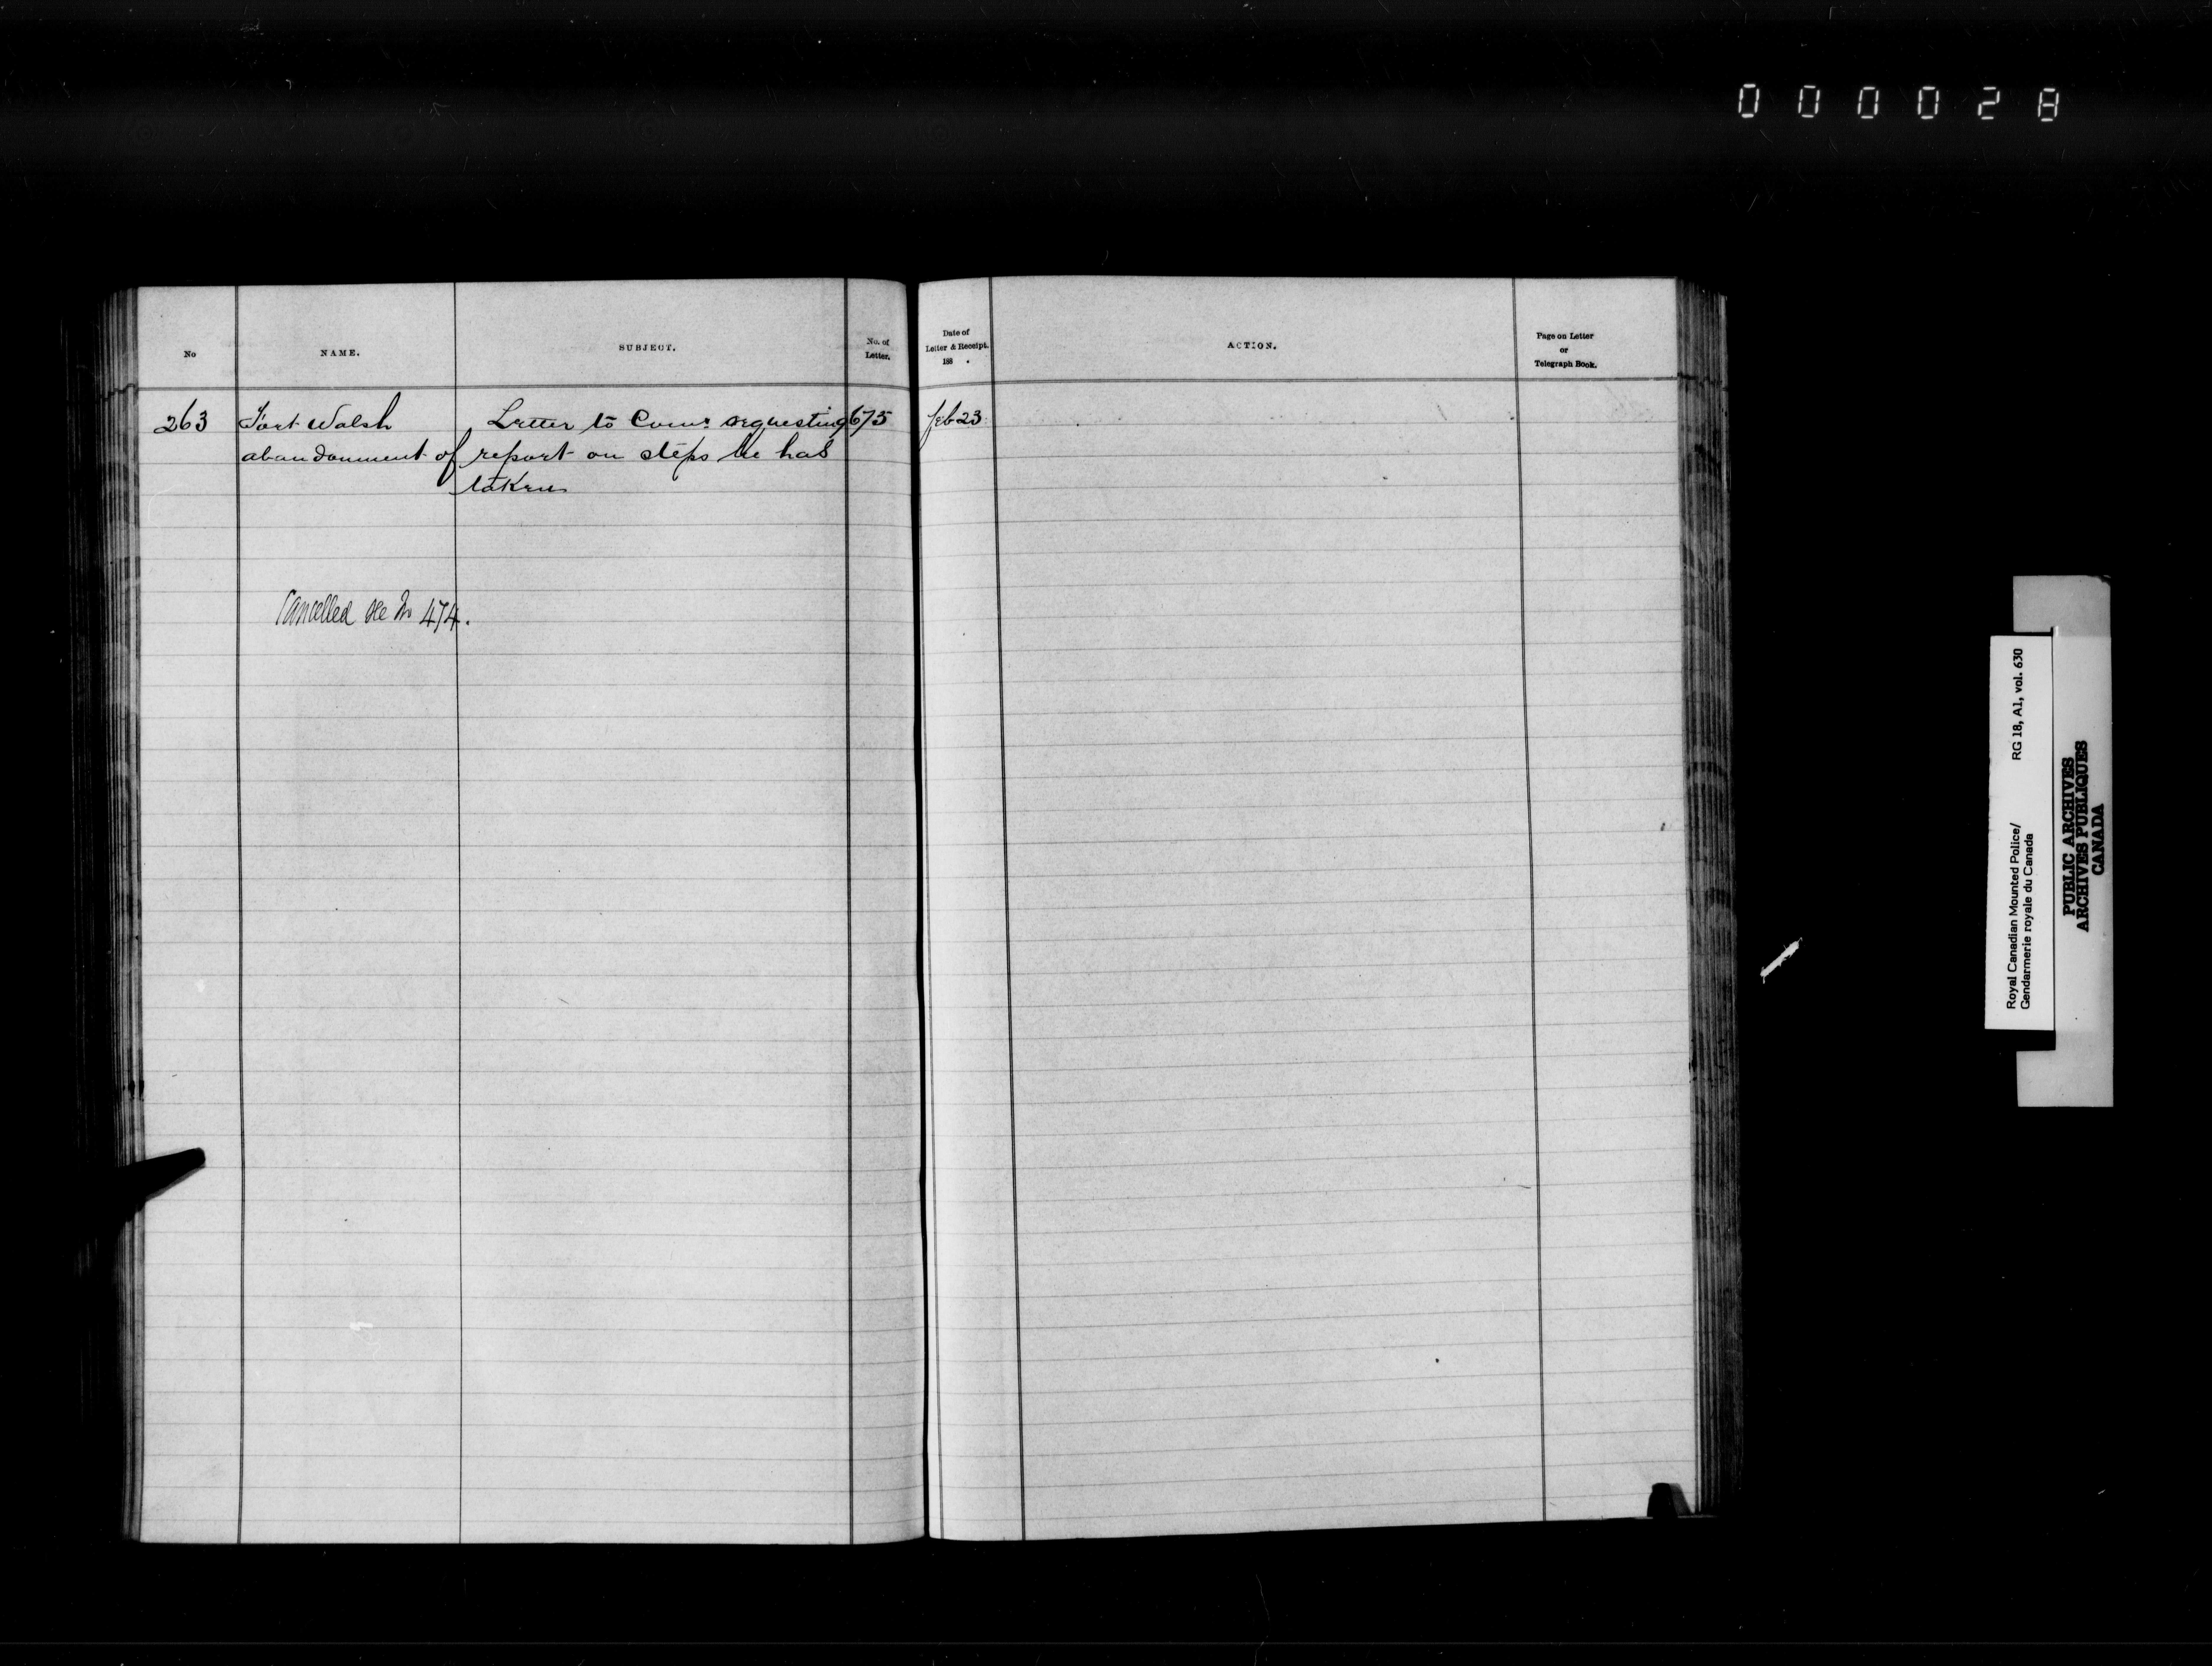 000028
No
NAME.
SUBJECT.
No. of
Letter.
Date of
Letter & Receipt.
188 .
ACTION.
Page on Letter
or
Telegraph Book.
263 Fort Walsh Letter to Comr requesting 675 feb 23
abandonment of report on steps he has
taken
Cancelled see No 474.
Royal Canadian Mounted Police/ RG 18, A1, vol. 630
Gendarmerie royale du Canada
PUBLIC ARCHIVES
ARCHIVES PUBLIQUES
CANADA